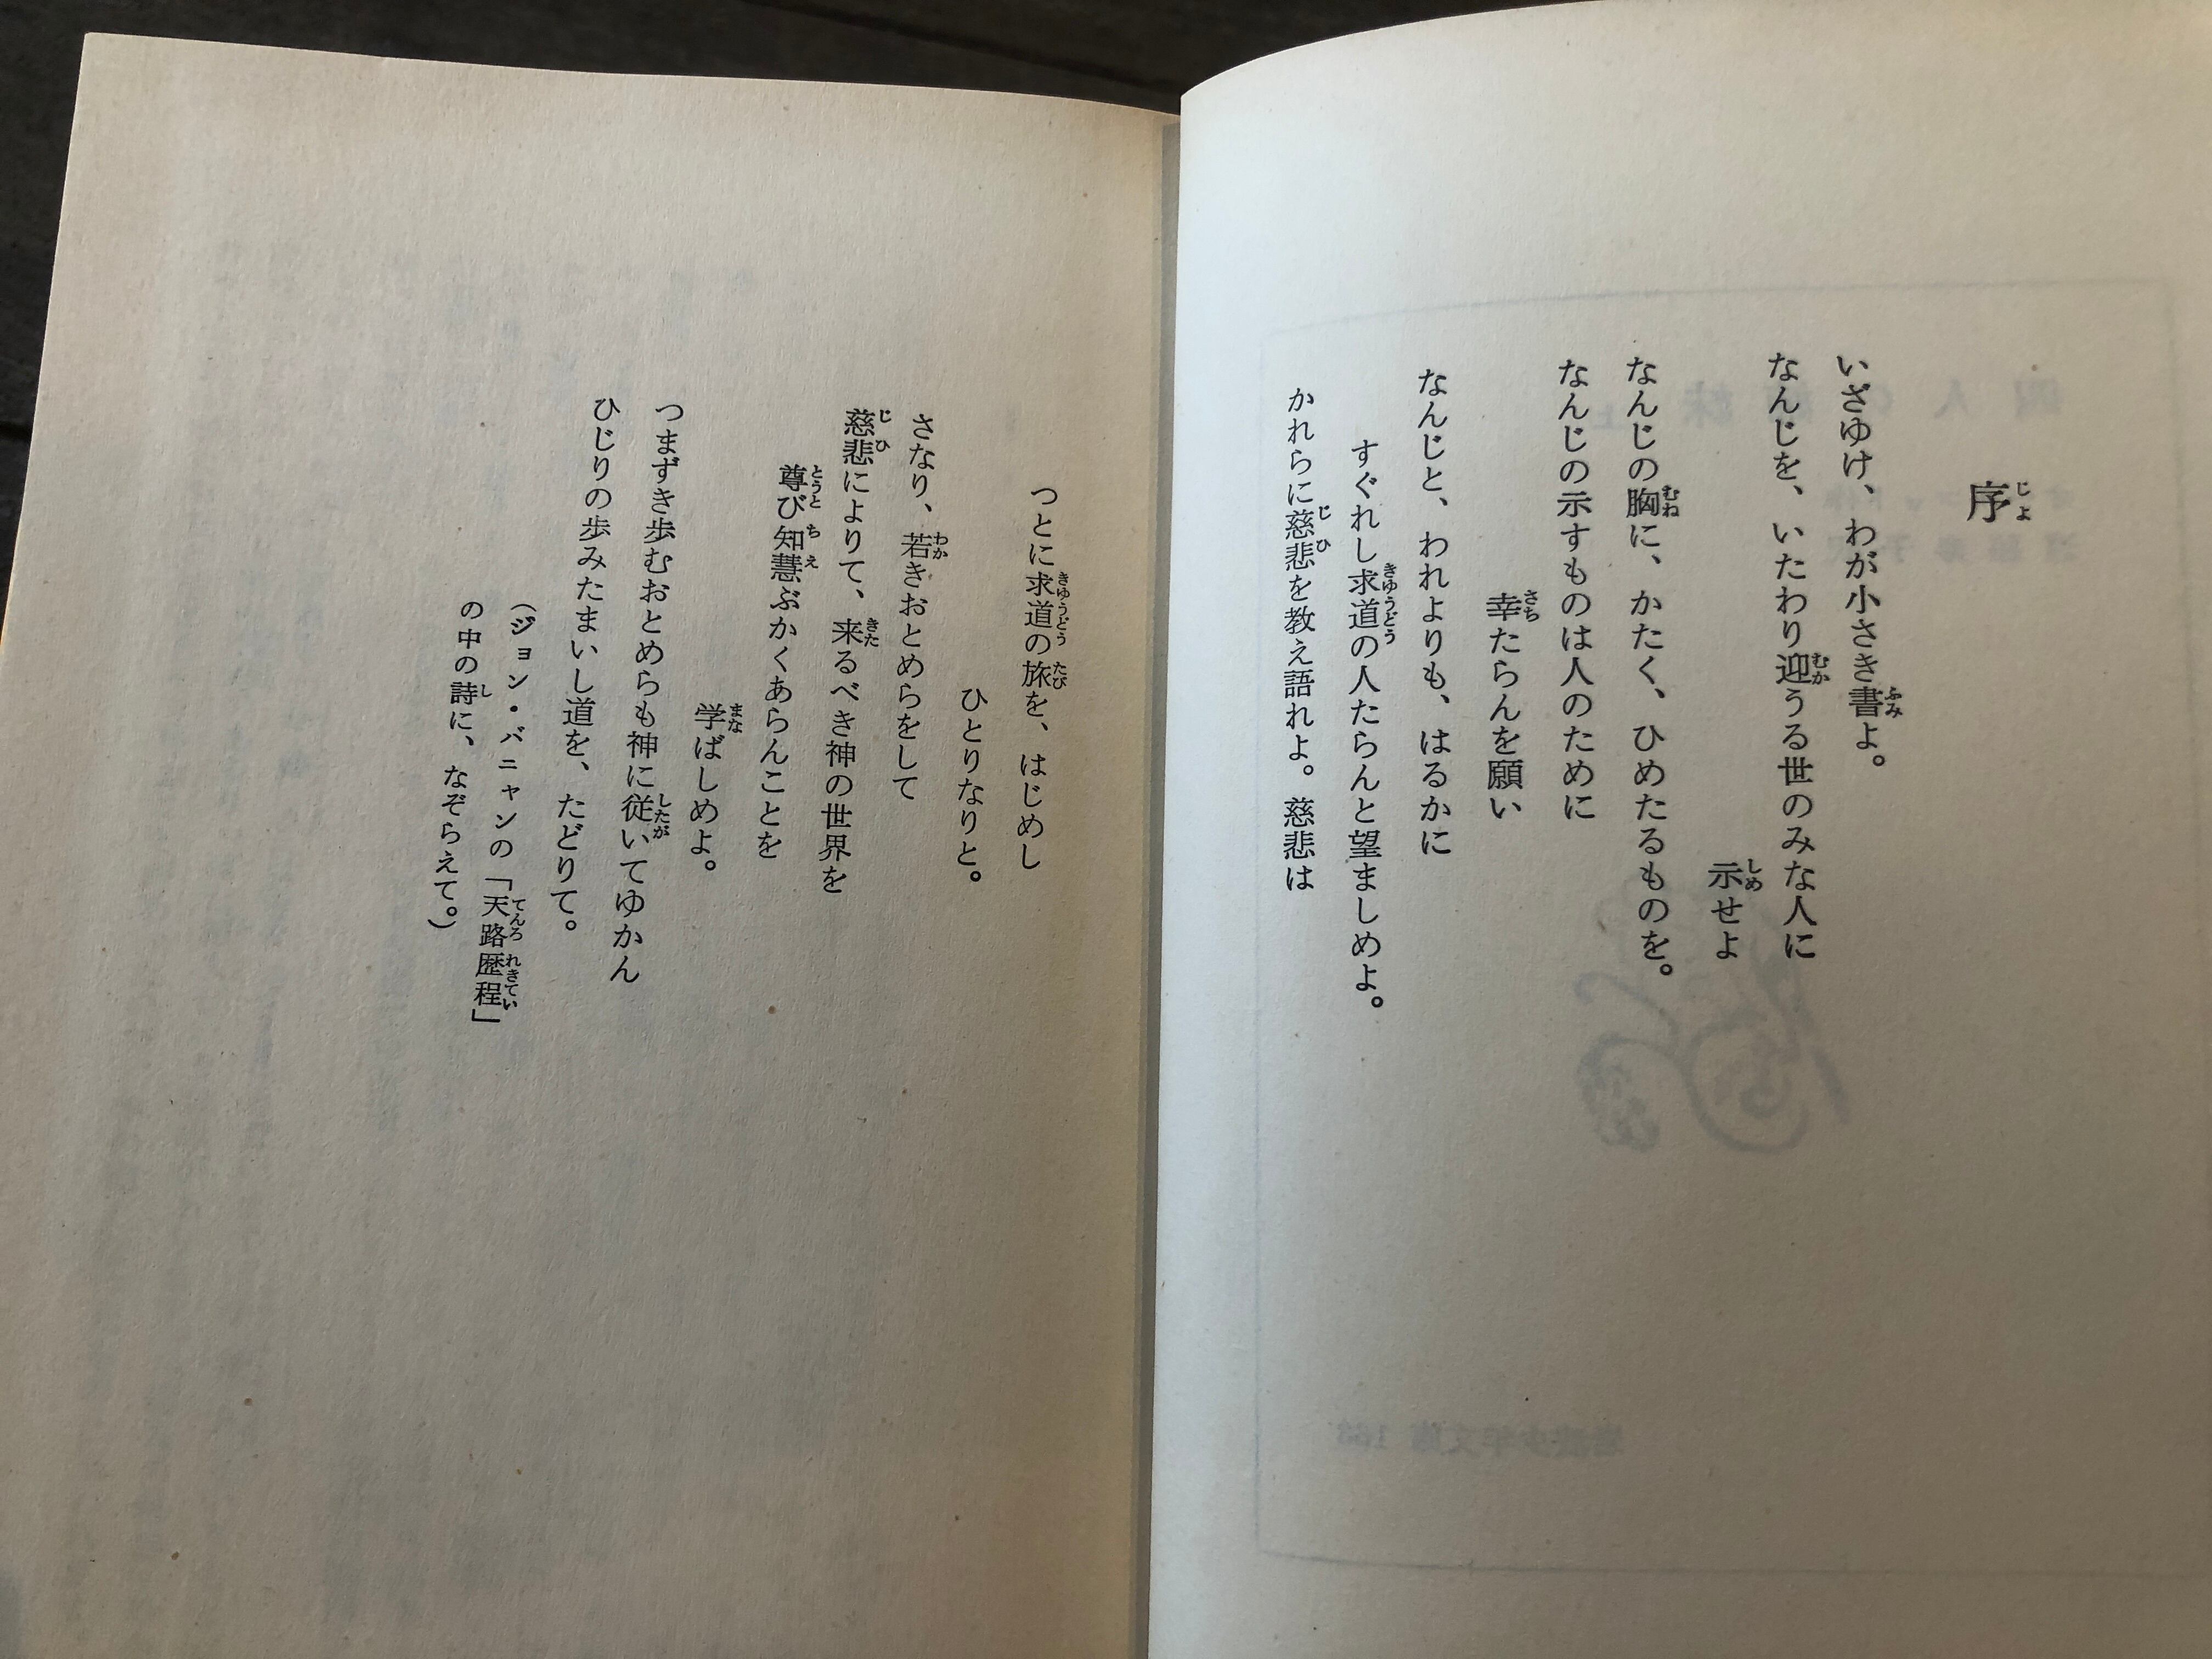 序
いざゆけ、わが小さき書よ。
なんじを、いたわり迎うる世のみな人に
示せよ
なんじの胸に、かたく、ひめたるものを。
なんじの示すものは人のために
幸たらんを願い
なんじと、われよりも、はるかに
すぐれし求道の人たらんと望ましめよ。
かれらに慈悲を教え語れよ。慈悲は
つとに求道の旅を、はじめし
ひとりなりと。
さなり、若きおとめらをして
慈悲によりて、来るべき神の世界を
尊び知慧ぶかくあらんことを
学ばしめよ。
つまずき歩むおとめらも神に従いてゆかん
ひじりの歩みたまいし道を、たどりて。
(ジョン・バニャンの「天路歴程」
の中の詩に、なぞらえて。)